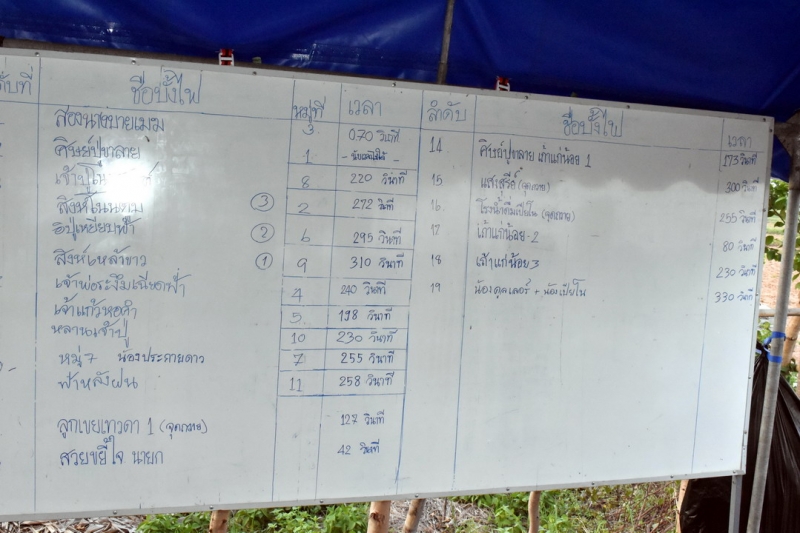 ชื่อบั้งไฟ หมู่ที่ เวลา ลำดับ ชื่อบั้งไฟ เวลา
สองนางบายเมฆ 3 070 วินาที
ศิษย์ปู่ขาลาย 1
8 220 วินาที
สิงห์โนนดม ③ 2 272 วินาที
อีปู่เหยียบฟ้า ② 6 295 วินาที
สิงห์เหล้าขาว ① 9 310 วินาที
เจ้าพ่อระงึมเฉือดฟ้า 4 240 วินาที
เจ้าแก้วหอคำ 5 198 วินาที
หลานเจ้าปู่ 10 230 วินาที
หมู่ 7 น้องประกายดาว 7 255 วินาที
ฟ้าหลังฝน 11 258 วินาที
ลูกเขยเทวดา 1 (จุดถวาย) 127 วินาที
สวยขยี้ใจ นายก 42 วินาที
14 ศิษย์ปู่ขาลาย เถ้าแก่น้อย 1 173 วินาที
15 แสงสุรีย์ (จุดถวาย) 300 วินาที
16 โรงน้ำดื่มเปียโน (จุดถวาย) 255 วินาที
17 เถ้าแก่น้อย-2 80 วินาที
18 เถ้าแก่น้อย 3 230 วินาที
19 น้องดุลเลอร์ + น้องเปียโน 330 วินาที